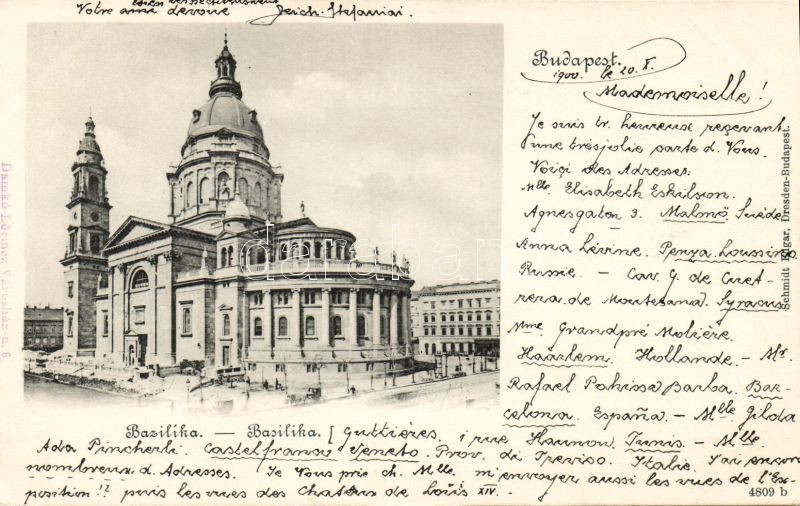 bien respectueusement
Votre ami dévoué Jerich. Stefaniai.
Budapest.
1900. le 20. X.
Mademoiselle!
Je suis tr. heureux reçevant
une trèsjolie carte d. Vous.
Voiçi des Adresses:
Mlle. Elisabeth Eskilson.
Agnesgaton 3. Malmö Suède
Anna Lévine. Penya Loussino
Russie. — Cav. G. de Cuet-
rera de Montesana. Syracus
Mme Grandpré Molière.
Haarlem. Hollande. — Mr.
Rafael Pahissa Barba. Bar-
celona. España. — Mlle Gilda
Bazilika. — Basilika. [ Guttières. 1 rue Tunis — Mlle.
Ada Pincherli. Castelfranco Veneto. Prov. di Treviso. Italie. J'ai encore
nombreux d. Adresses. Je Vous prie ch. Mlle. m'envoyer aussi les vues de l'Ex-
position!? puis les vues des chateux de Loiis XIV.
4809 b
Schmidt Edgar, Dresden-Budapest.
Damkó Lőrincz Városház-u. 6.
darabanth